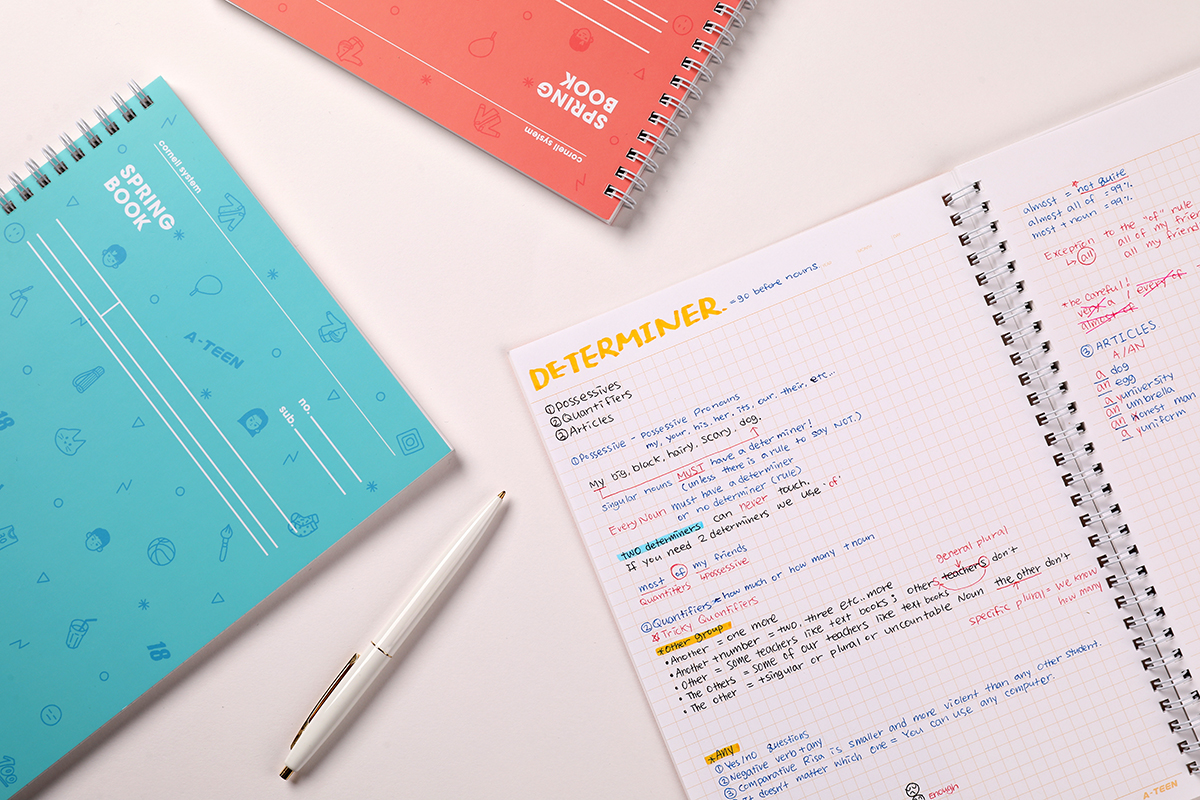 SPRING
BOOK
cornell system
cornell system
SPRING
BOOK
A-TEEN
no.
sub.
18
18
DETERMINER. = go before nouns
① possessives
② Quantifiers
③ Articles
① Possessive - Possessive Pronouns
my, your, his, her, its, our, their, etc...
My big, black, hairy, scary dog.
singular nouns MUST have a determiner!
(unless there is a rule to say NOT.)
Every Noun must have a determiner
or no determiner (rule)
TWO determiners can never touch.
If you need 2 determiners we use 'of'
most of my friends
Quantifiers possessive
② Quantifiers how much or how many + noun
Tricky Quantifiers
*Other group
• Another = one more
• Another + number = two, three etc... more
• Other = some teachers like text books ; others teachers don't
general plural
• The others = some of our teachers like text books the other don't
• The other = + singular or plural or uncountable Noun
specific plural = We know
how many
*Any
① Yes/no questions
② Negative verb + any
③ Comparative Risa is smaller and more violent than any other student.
It doesn't matter which one = You can use any computer.
Enough
A-TEEN
almost = not quite
almost all of = 99%
most + noun = 99%
Exception to the "of" rule
all all of my
all my
*be careful!
very a / every of
almost of
③ ARTICLES
A/AN
a dog
an egg
a university
an umbrella
an honest man
a yuniform